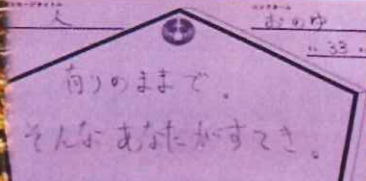 人
おのゆ
33
有りのままで。
そんなあなたがすてき。